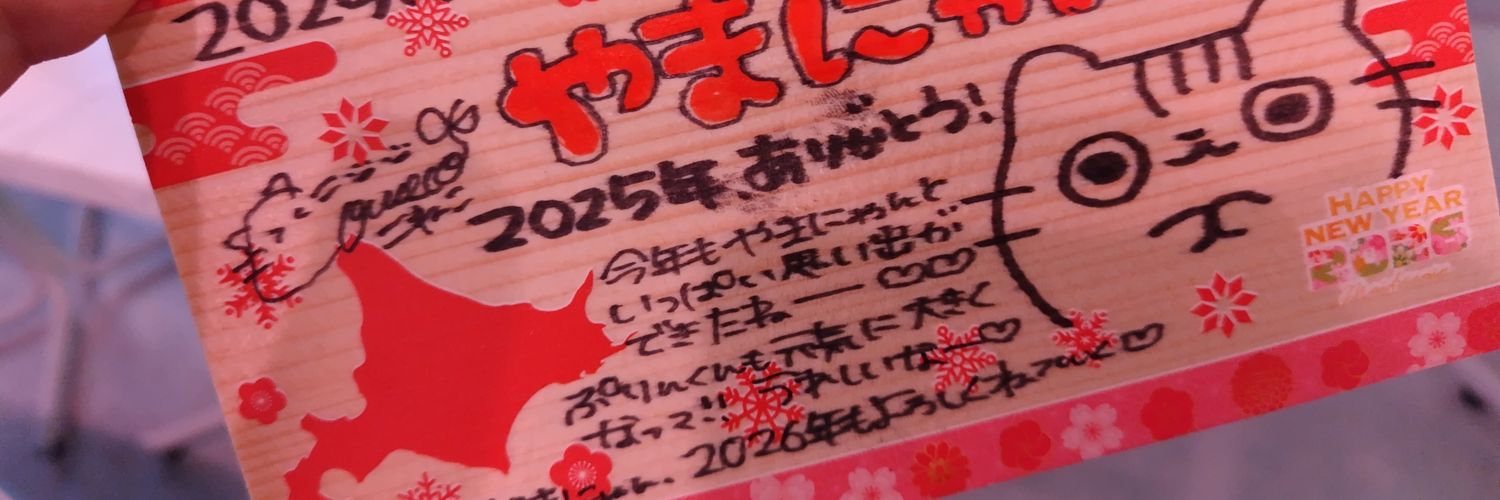 2025
やまにゃ
2025年、ありがとう!
今年もやまにゃんと
いっぱい思い出が
できたねー♡♡
ぷりんくんも元気に大きく
なって!! うれしいなー♡
2026年もよろしくね
HAPPY
NEW YEAR
2026